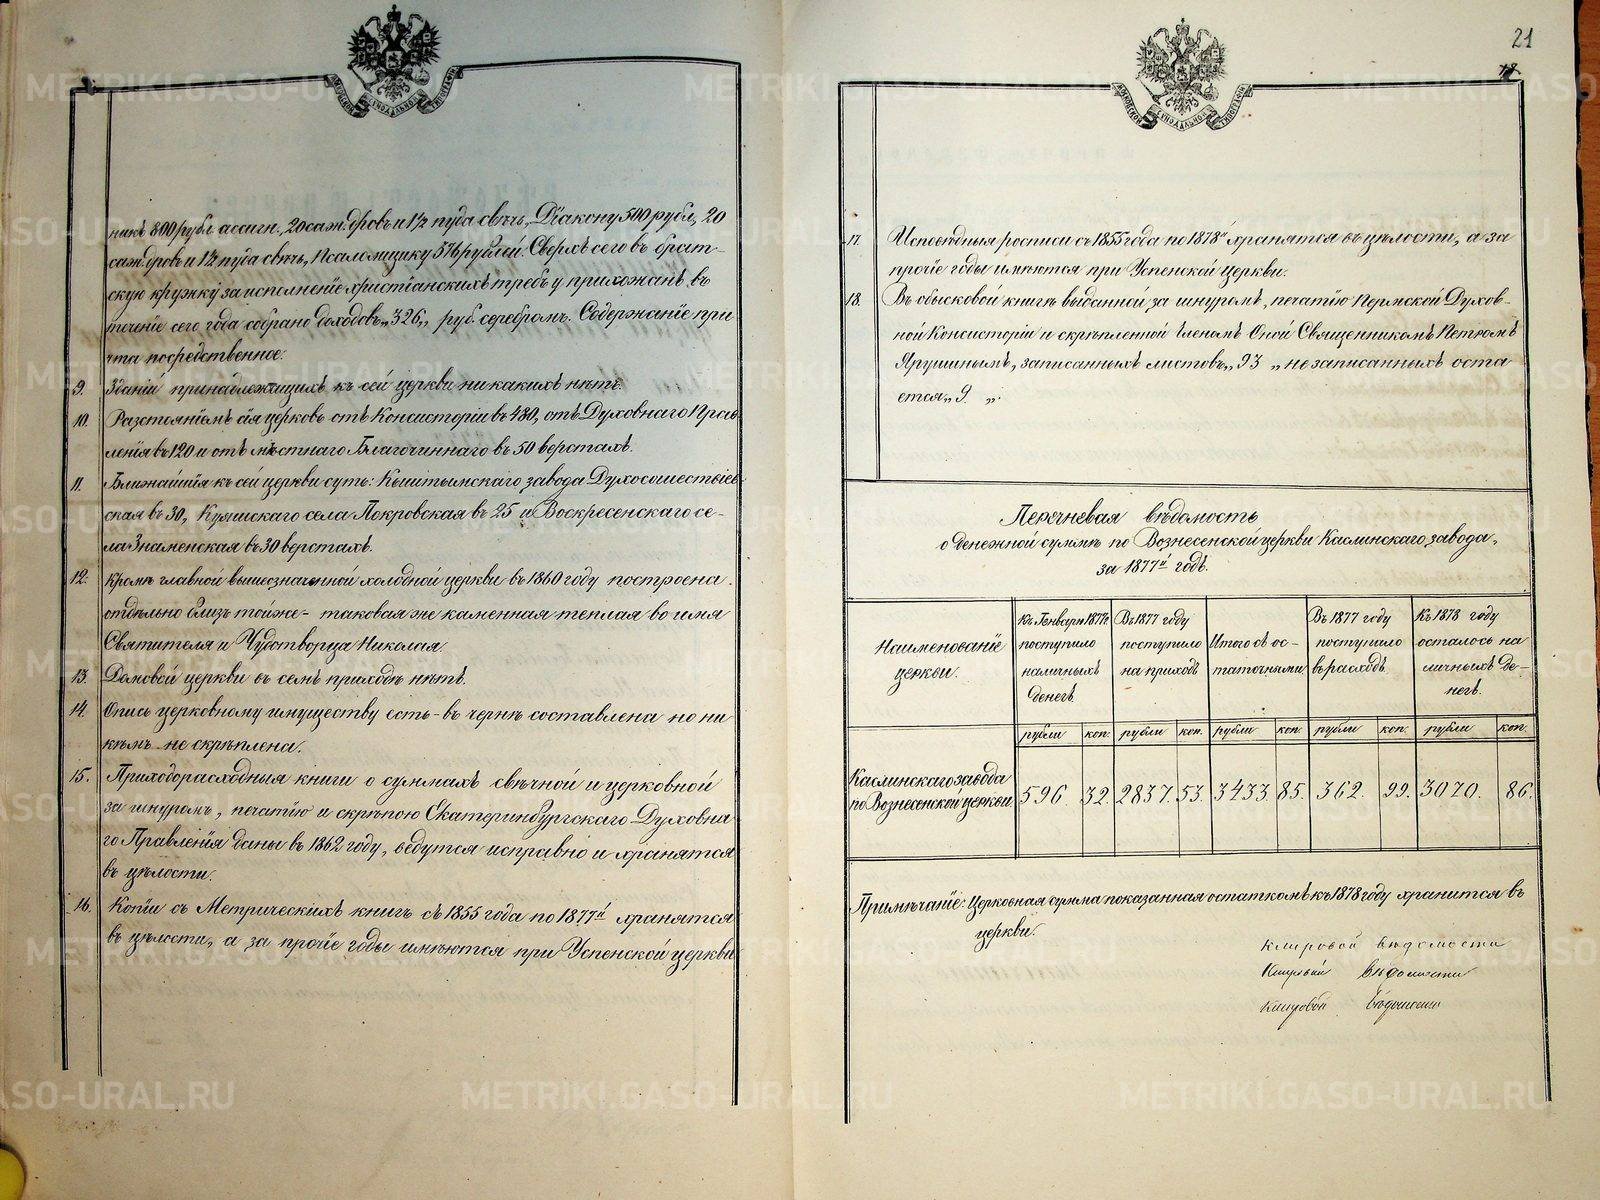 никъ 800 рубл. ассигн., 20 саж. дровъ и 1½ пуда свѣчь, Діакону 500 рубл., 20
саж. дровъ и 1½ пуда свѣчь, Псаломщику 576 рублей. Сверхъ сего въ брат-
скую кружку за исполненіе христіанскихъ требъ у прихожанъ въ
теченіе сего года собрано доходовъ „326„ руб. серебромъ. Содержаніе при-
чта посредственное.
9. Зданій принадлежащихъ къ сей церкви никакихъ нѣтъ.
10. Разстояніемъ сія церковь отъ Консисторіи въ 480, отъ Духовнаго Прав-
ленія въ 120 и отъ мѣстнаго Благочиннаго въ 50 верстахъ.
11. Ближайшія къ сей церкви суть: Кыштымскаго завода Духосошествіев-
ская въ 30, Куяшскаго села Покровская въ 25 и Воскресенскаго се-
ла Знаменская въ 30 верстахъ.
12. Кромѣ главной вышеозначенной холодной церкви въ 1860 году построена
отдѣльно близъ той же - таковая же каменная теплая во имя
Святителя и Чудотворца Николая.
13. Домовой церкви въ семъ приходѣ нѣтъ.
14. Опись церковному имуществу есть - въ чернѣ составлена но ни
кѣмъ не скрѣплена.
15. Приходорасходныя книги о суммахъ свѣчной и церковной
за шнуромъ, печатію и скрѣпою Екатеринбургскаго Духовна
го Правленія даны въ 1862 году, ведутся исправно и хранятся
въ цѣлости.
16. Копіи съ Метрическихъ книгъ съ 1855 года по 1877й хранятся
въ цѣлости, а за прочіе годы имѣются при Успенской церкви
МОСКОВСКОЙ СѴНОДАЛЬНОЙ ТИПОГРАФІИ
21
17. Исповѣдныя росписи съ 1855 года по 1878й хранятся въ цѣлости, а за
прочіе годы имѣются при Успенской церкви.
18. Въ обысковой книгѣ выданной за шнуромъ, печатію Пермской Духов-
ной Консисторіи и скрѣпленной Членомъ Оной Священникомъ Петромъ
Ярушинымъ, записанныхъ листовъ „93 „ незаписанныхъ оста
ется „9 „.
Перечневая вѣдомость
о денежной суммѣ по Вознесенской церкви Каслинскаго завода,
за 1877й годъ.
Наименованіе церкви. | Къ Генварю 1877г. поступило наличныхъ денегъ | Въ 1877 году поступило на приходъ | Итого съ остаточными | Въ 1877 году поступило въ расходъ | Къ 1878 году осталось наличныхъ денегъ.
рубли | коп. | рубли | коп. | рубли | коп. | рубли | коп. | рубли | коп.
Каслинскаго завода
по Вознесенской церкви | 596. | 32. | 2837. | 53. | 3433. | 85. | 362. | 99. | 3070. | 86.
Примѣчаніе: Церковная сумма показанная остаткомъ къ 1878 году хранится въ
церкви.
клировой вѣдомости
Клировой Вѣдомости
клировой Вѣдомости
METRIKI.GASO-URAL.RU